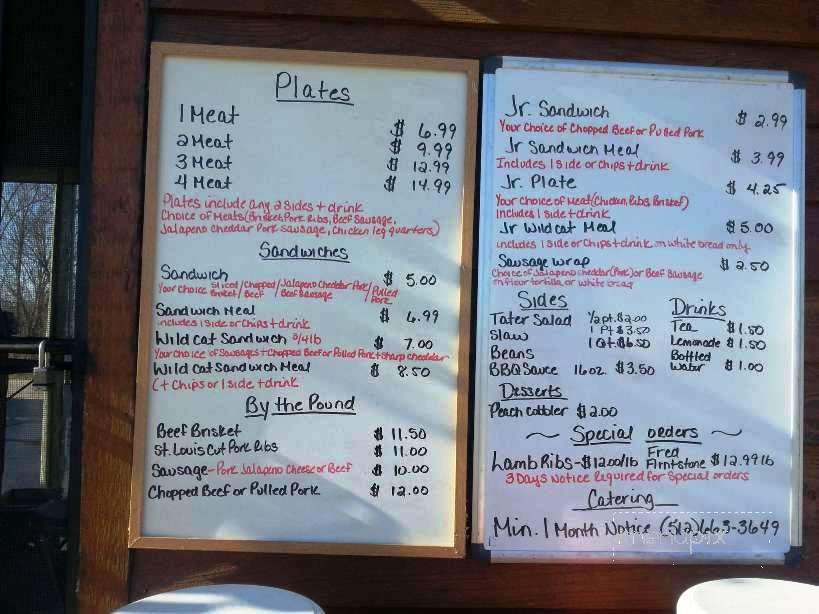 Plates
1 Meat $ 6.99
2 Meat $ 9.99
3 Meat $ 12.99
4 Meat $ 14.99
Plates include any 2 sides + drink
Choice of Meats (Brisket, Pork Ribs, Beef Sausage,
Jalapeno Cheddar Pork Sausage, Chicken leg quarters)
Sandwiches
Sandwich $ 5.00
Your Choice Sliced Brisket / Chopped Beef / Jalapeno Cheddar Pork / Beef Sausage / Pulled Pork
Sandwich Meal $ 6.99
includes 1 Side or Chips + drink
Wild cat Sandwich 3/4 lb $ 7.00
Your Choice of Sausages + Chopped Beef or Pulled Pork + Sharp cheddar
Wild Cat Sandwich Meal $ 8.50
(+ Chips or 1 side + drink
By the Pound
Beef Brisket $ 11.50
St. Louis Cut Pork Ribs $ 11.00
Sausage - Pork Jalapeno Cheese or Beef $ 10.00
Chopped Beef or Pulled Pork $ 12.00
Jr. Sandwich $ 2.99
Your Choice of Chopped Beef or Pulled Pork
Jr Sandwich Meal $ 3.99
Includes 1 Side or Chips + drink
Jr. Plate $ 4.25
Your Choice of Meat (Chicken, Ribs, Brisket)
Includes 1 side + drink
Jr Wildcat Meal $ 5.00
includes 1 Side or Chips + drink on white bread only
Sausage wrap $ 2.50
Choice of Jalapeno Cheddar (Pork) or Beef Sausage
on flour tortilla or white bread
Sides
Tater Salad 1/2 pt. $2.00
Slaw 1 Pt $3.50
Beans 1 Qt $6.50
BBQ Sauce 16oz $3.50
Drinks
Tea $1.50
Lemonade $1.50
Bottled
Water $ 1.00
Desserts
Peach cobbler $2.00
~ Special orders ~
Lamb Ribs - $12.00/lb Fred Flintstone $12.99 lb
3 Days Notice Required for Special orders
Catering
Min. 1 Month Notice (512) 663-3649